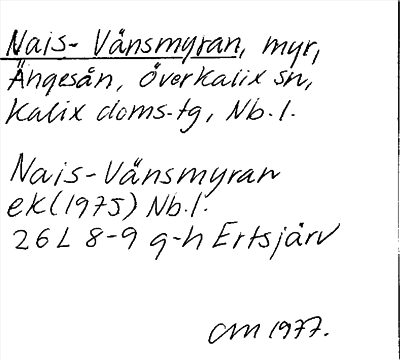 Nais-Vänsmyran, myr,
Ängesån, Överkalix sn,
Kalix doms-tg, Nb.l.
Nais-Vänsmyran
ek(1975) Nb.l.
26L 8-9 g-h Ertsjärv
CM 1977.